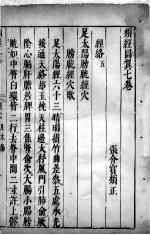 類經圖翼七卷
張介賓
經絡五
足太陽膀胱經穴
膀胱經穴歌
足太陽經六十三睛明攢竹曲差參五處承光
接通天絡却玉枕天柱邊大杼風門引肺俞厥
陰心膈肝膽居脾胃三焦腎俞次大腸小腸膀
胱如中膂白環皆二行去脊中間二寸許上髎